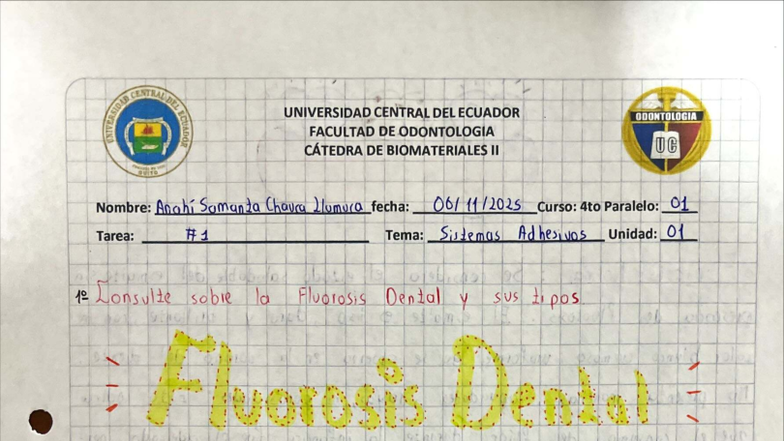 UNIVERSIDAD CENTRAL DEL ECUADOR
FACULTAD DE ODONTOLOGIA
CÁTEDRA DE BIOMATERIALES II
UNIVERSIDAD CENTRAL DEL ECUADOR
QUITO
ODONTOLOGIA
UC
Nombre: Anahí Samanta Chaura Llumuca fecha: 06/11/2025 Curso: 4to Paralelo: 01
Tarea: #1 Tema: Sistemas Adhesivos Unidad: 01
1º Consulte sobre la Fluorosis Dental y sus tipos
Fluorosis Dental